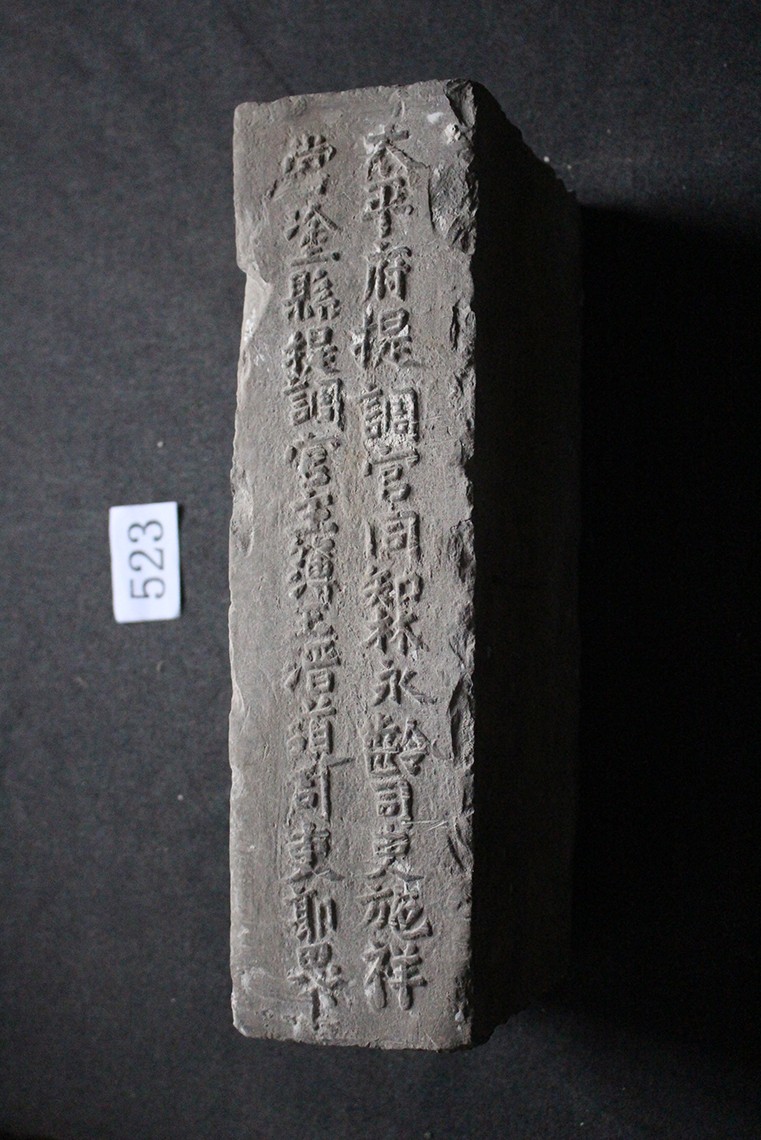 太平府提調官同知林永齡司吏施祥
當塗縣提調官主簿王司吏
523